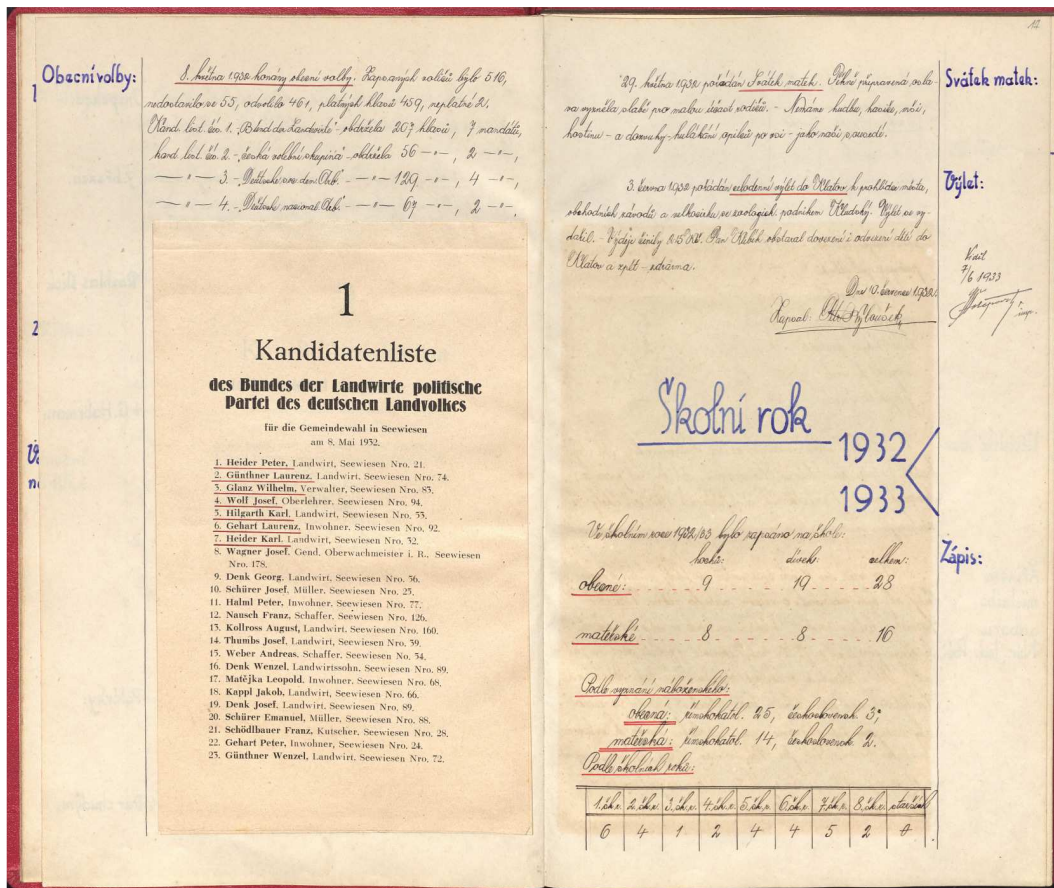 Obecní volby:
8. května 1932 konány obecní volby. Zapsaných voličů bylo 516,
nedostavilo se 55, odvolilo 461, platných hlasů 459, neplatné 2.
Kand. list. čís. 1. „Bund der Landwirte“ obdržela 207 hlasů, 7 mandátů,
kand. list. čís. 2. - česká volební skupina - obdržela 56 -"-, 2 -"-,
-"- 3. - Deutsche soz. dem. Arb. -"- 129, 4 -"-,
-"- 4. - Deutsche national Arb. -"- 67, 2 -"-,
1
Kandidatenliste
des Bundes der Landwirte politische
Partei des deutschen Landvolkes
für die Gemeindewahl in Seewiesen
am 8. Mai 1932.
1. Heider Peter, Landwirt, Seewiesen Nro. 21.
2. Günthner Laurenz, Landwirt, Seewiesen Nro. 74.
3. Glanz Wilhelm, Verwalter, Seewiesen Nro. 83.
4. Wolf Josef, Oberlehrer, Seewiesen Nro. 94.
5. Hilgarth Karl, Landwirt, Seewiesen Nro. 53.
6. Gehart Laurenz, Inwohner, Seewiesen Nro. 92.
7. Heider Karl, Landwirt, Seewiesen Nro. 32.
8. Wagner Josef, Gend. Oberwachmeister i. R., Seewiesen
Nro. 178.
9. Denk Georg, Landwirt, Seewiesen Nro. 36.
10. Schürer Josef, Müller, Seewiesen Nro. 25.
11. Halml Peter, Inwohner, Seewiesen Nro. 77.
12. Nausch Franz, Schaffer, Seewiesen Nro. 126.
13. Kollross August, Landwirt, Seewiesen Nro. 160.
14. Thumbs Josef, Landwirt, Seewiesen Nro. 39.
15. Weber Andreas, Schaffer, Seewiesen No. 54.
16. Denk Wenzel, Landwirtssohn, Seewiesen Nro. 89.
17. Matějka Leopold, Inwohner, Seewiesen Nro. 68.
18. Kappl Jakob, Landwirt, Seewiesen Nro. 66.
19. Denk Josef, Landwirt, Seewiesen Nro. 89.
20. Schürer Emanuel, Müller, Seewiesen Nro. 88.
21. Schödlbauer Franz, Kutscher, Seewiesen Nro. 28.
22. Gehart Peter, Inwohner, Seewiesen Nro. 24.
23. Günthner Wenzel, Landwirt, Seewiesen Nro. 72.
12
Svátek matek:
29. května 1932 pořádán Svátek matek. Pěkně připravená osla-
va vyzněla slabě pro malou účast rodičů. - Nemáme hudbu, koníče,
hostinu - a - jako naši sousedé.
Výlet:
3. června 1932 pořádán celodenní výlet do Klatov, k prohlídce města,
obchodních závodů a velkocirku se zoologick. podnikem Kludský. Výlet se vy-
dařil. - Výdeje činily 215 Kč. Pan obstaral dovezení i odvezení dětí do
Klatov a zpět - zdarma.
Dne 10. července 1932.
Zapsal:
Viděl
7/6 1933
Školní rok
1932
1933
Zápis:
Ve školním roce 1932/33 bylo zapsáno na škole:
hochů: dívek: celkem:
obecné: 9 19 28
mateřské 8 8 16
Podle vyznání náboženského:
obecná: římskokatol. 25, československ. 3;
mateřská: římskokatol. 14, československ. 2.
Podle školních roků:
1. šk. r. 2. šk. r. 3. šk. r. 4. šk. r. 5. šk. r. 6. šk. r. 7. šk. r. 8. šk. r. starších
6 4 1 2 4 4 5 2 0